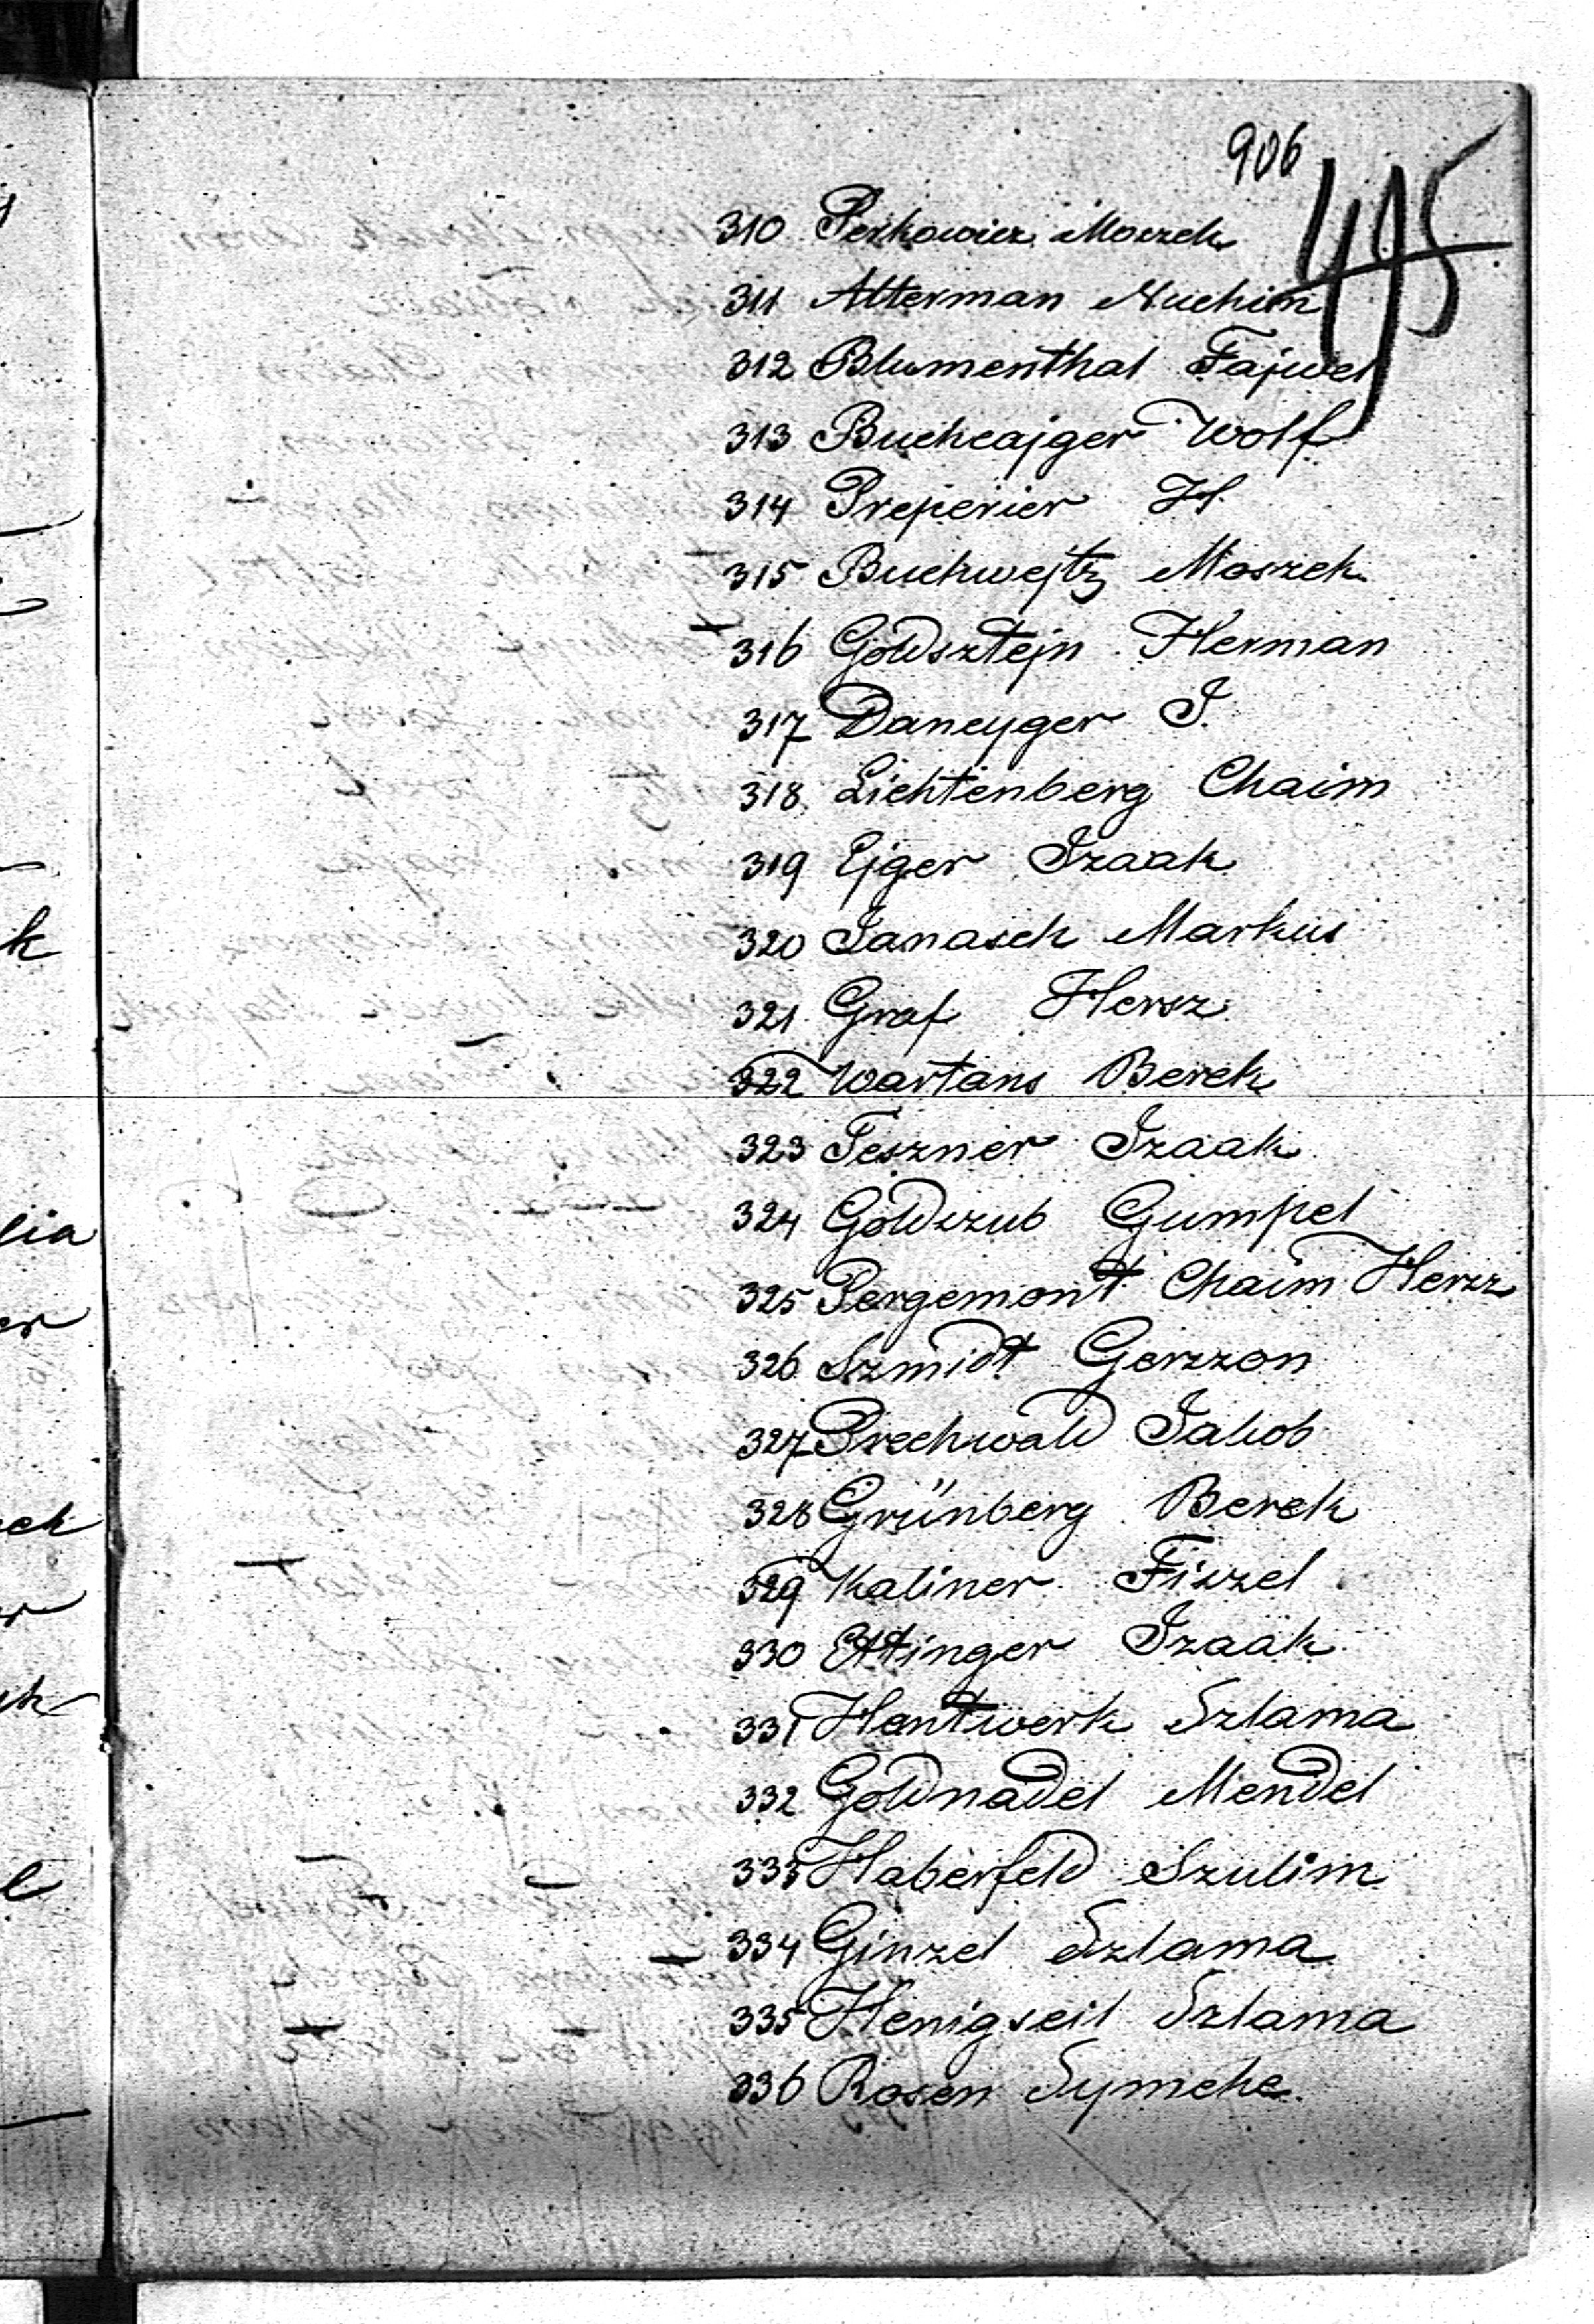 906
495
310 Perkowicz Moszek
311 Alterman Nuchim
312 Blumenthal Fajwel
313 Buchcajger Wolf
314 Prejerier H.
315 Buchwejtz Moszek
316 Goldsztejn Herman
317 Dancyger I.
318 Lichtenberg Chaim
319 Ejger Izaak
320 Janasch Markus
321 Graf Hersz
322 Wartans Berek
323 Teszner Izaak
324 Goldszub Gumpel
325 Pergemont Chaim Hersz
326 Szmidt Gerszon
327 Prechwald Jakob
328 Grünberg Berek
329 Kaliner Fiszel
330 Ettinger Izaak
331 Hantwerk Szlama
332 Goldnadel Mendel
333 Haberfeld Szulim
334 Ginzel Szlama
335 Henigseil Szlama
336 Rosen Symche